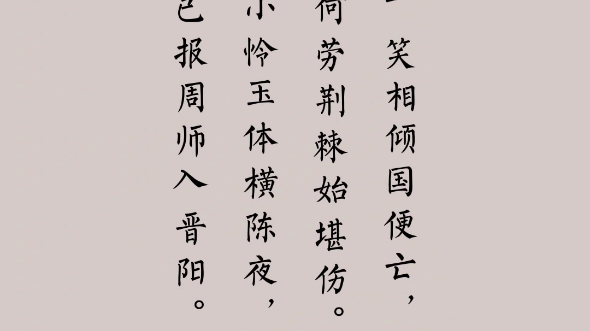 一笑相倾国便亡，
何劳荆棘始堪伤。
小怜玉体横陈夜，
已报周师入晋阳。